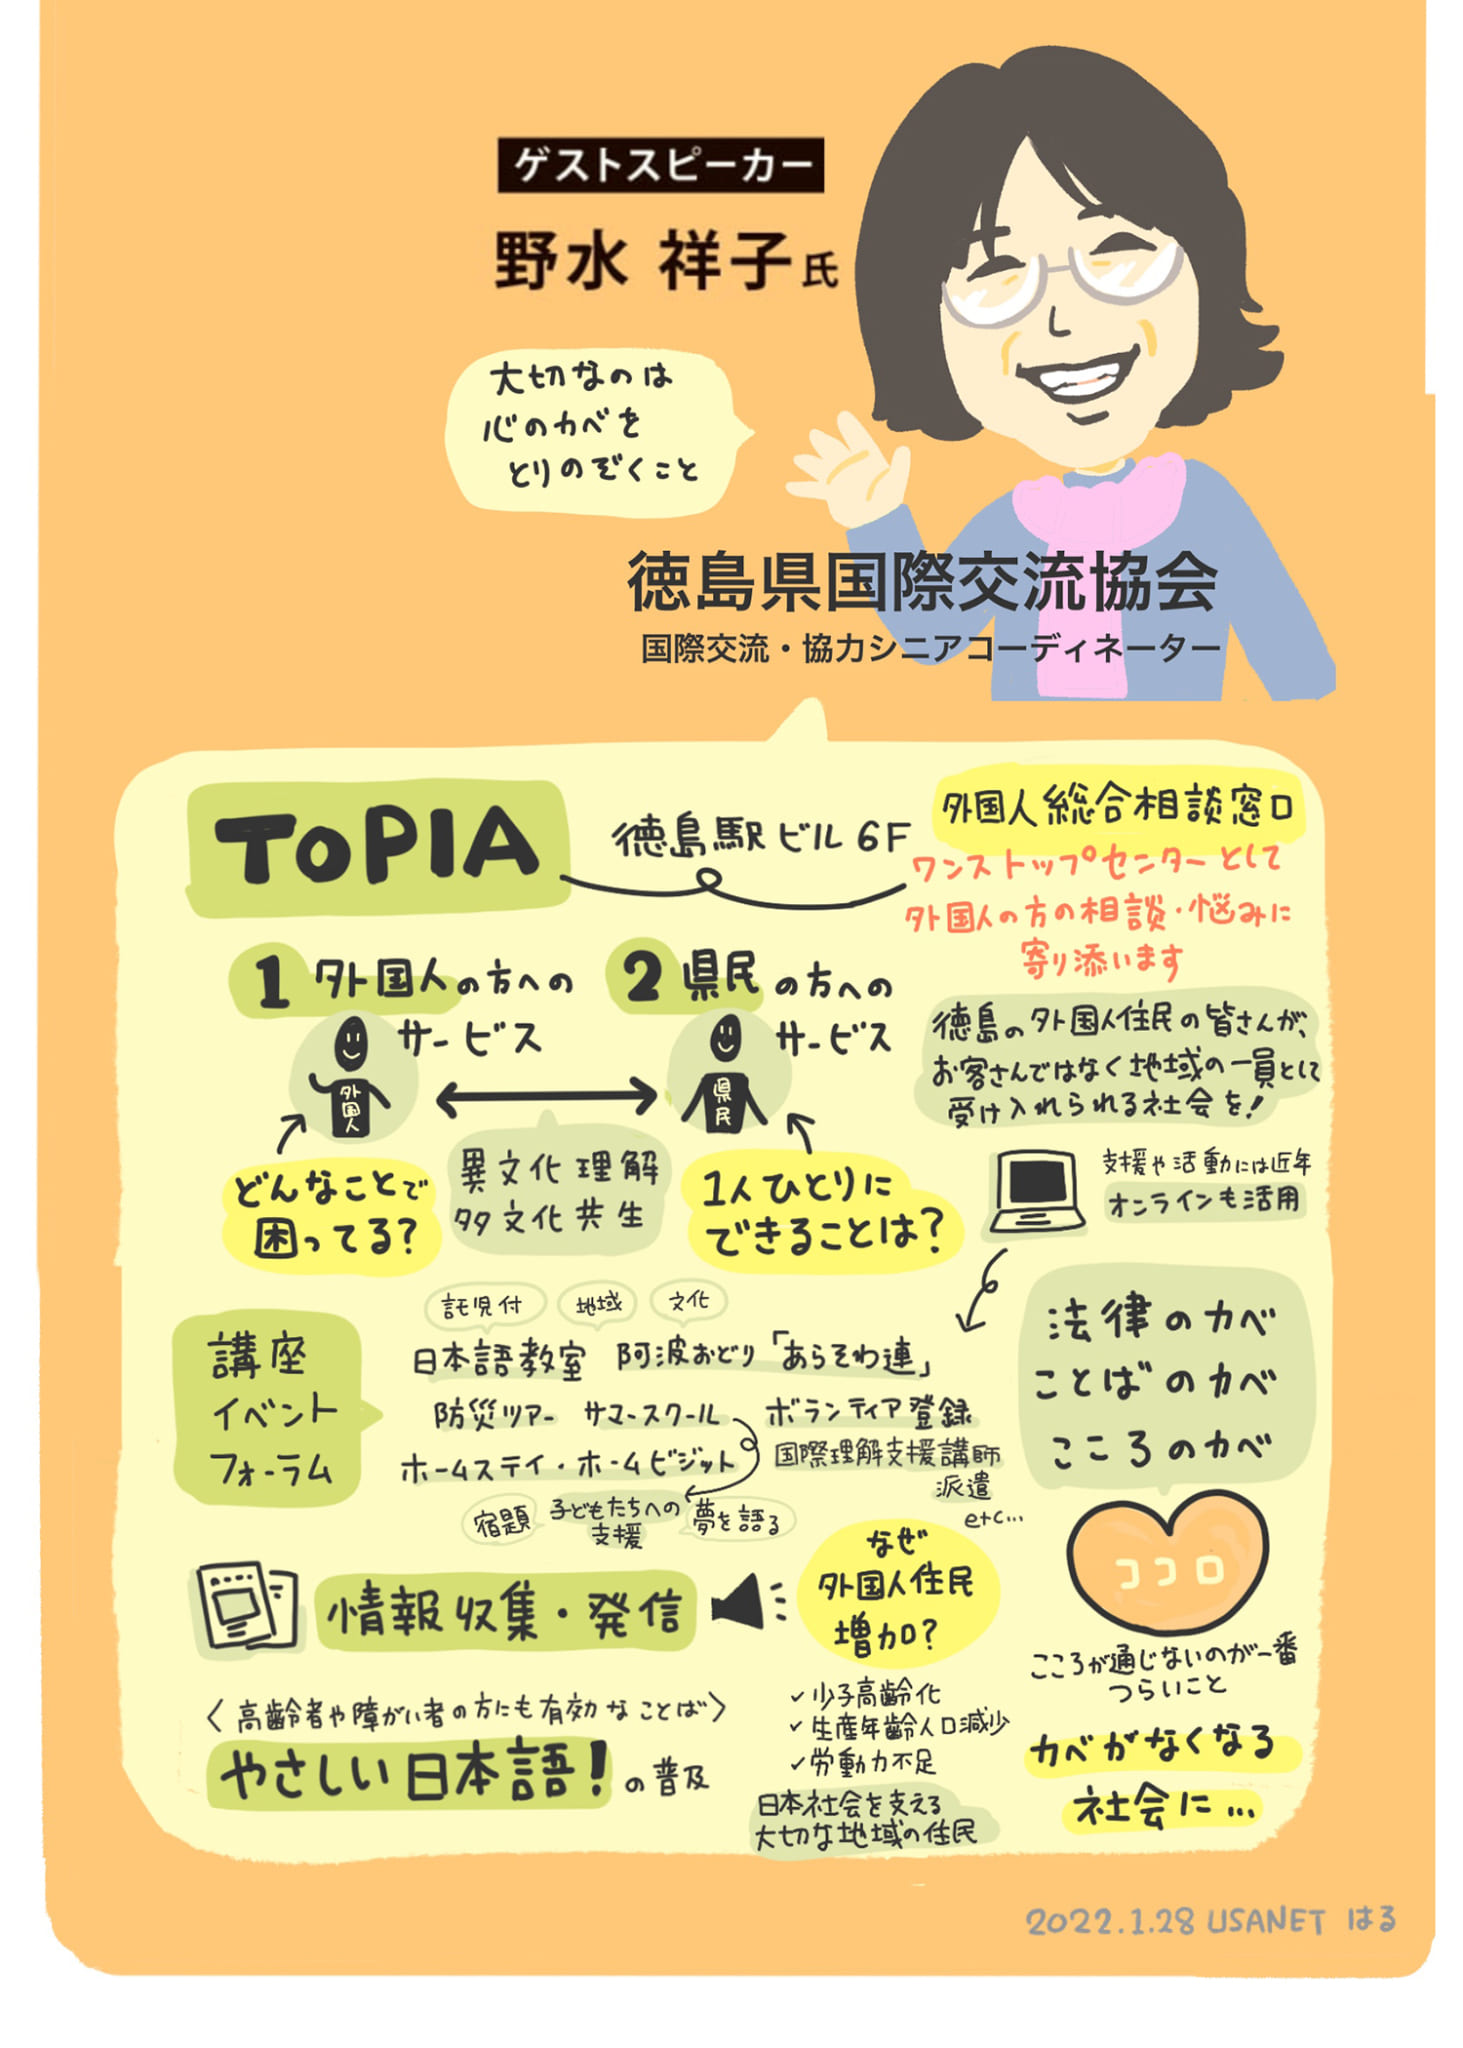 ゲストスピーカー
野水 祥子氏
大切なのは
心のカベを
とりのぞくこと
徳島県国際交流協会
国際交流・協力シニアコーディネーター
ToPIA
徳島駅ビル6F
外国人総合相談窓口
ワンストップセンターとして
外国人の方の相談・悩みに
寄り添います
1 外国人の方への
サービス
外国人
2 県民の方への
サービス
県民
徳島の外国人住民の皆さんが、
お客さんではなく地域の一員として
受け入れられる社会を!
どんなことで
困ってる?
異文化理解
多文化共生
1人ひとりに
できることは?
支援や活動には近年
オンラインも活用
講座
イベント
フォーラム
託児付
地域
文化
日本語教室 阿波おどり「あらそわ連」
防災ツアー サマースクール ボランティア登録
ホームステイ・ホームビジット 国際理解支援講師
派遣
etc...
宿題
子どもたちへの
支援
夢を語る
法律のカベ
ことばのカベ
こころのカベ
ココロ
こころが通じないのが一番
つらいこと
カベがなくなる
社会に...
情報収集・発信
なぜ
外国人住民
増加?
✓少子高齢化
✓生産年齢人口減少
✓労働力不足
日本社会を支える
大切な地域の住民
〈高齢者や障がい者の方にも有効なことば〉
やさしい日本語!の普及
2022.1.28 USANET はる